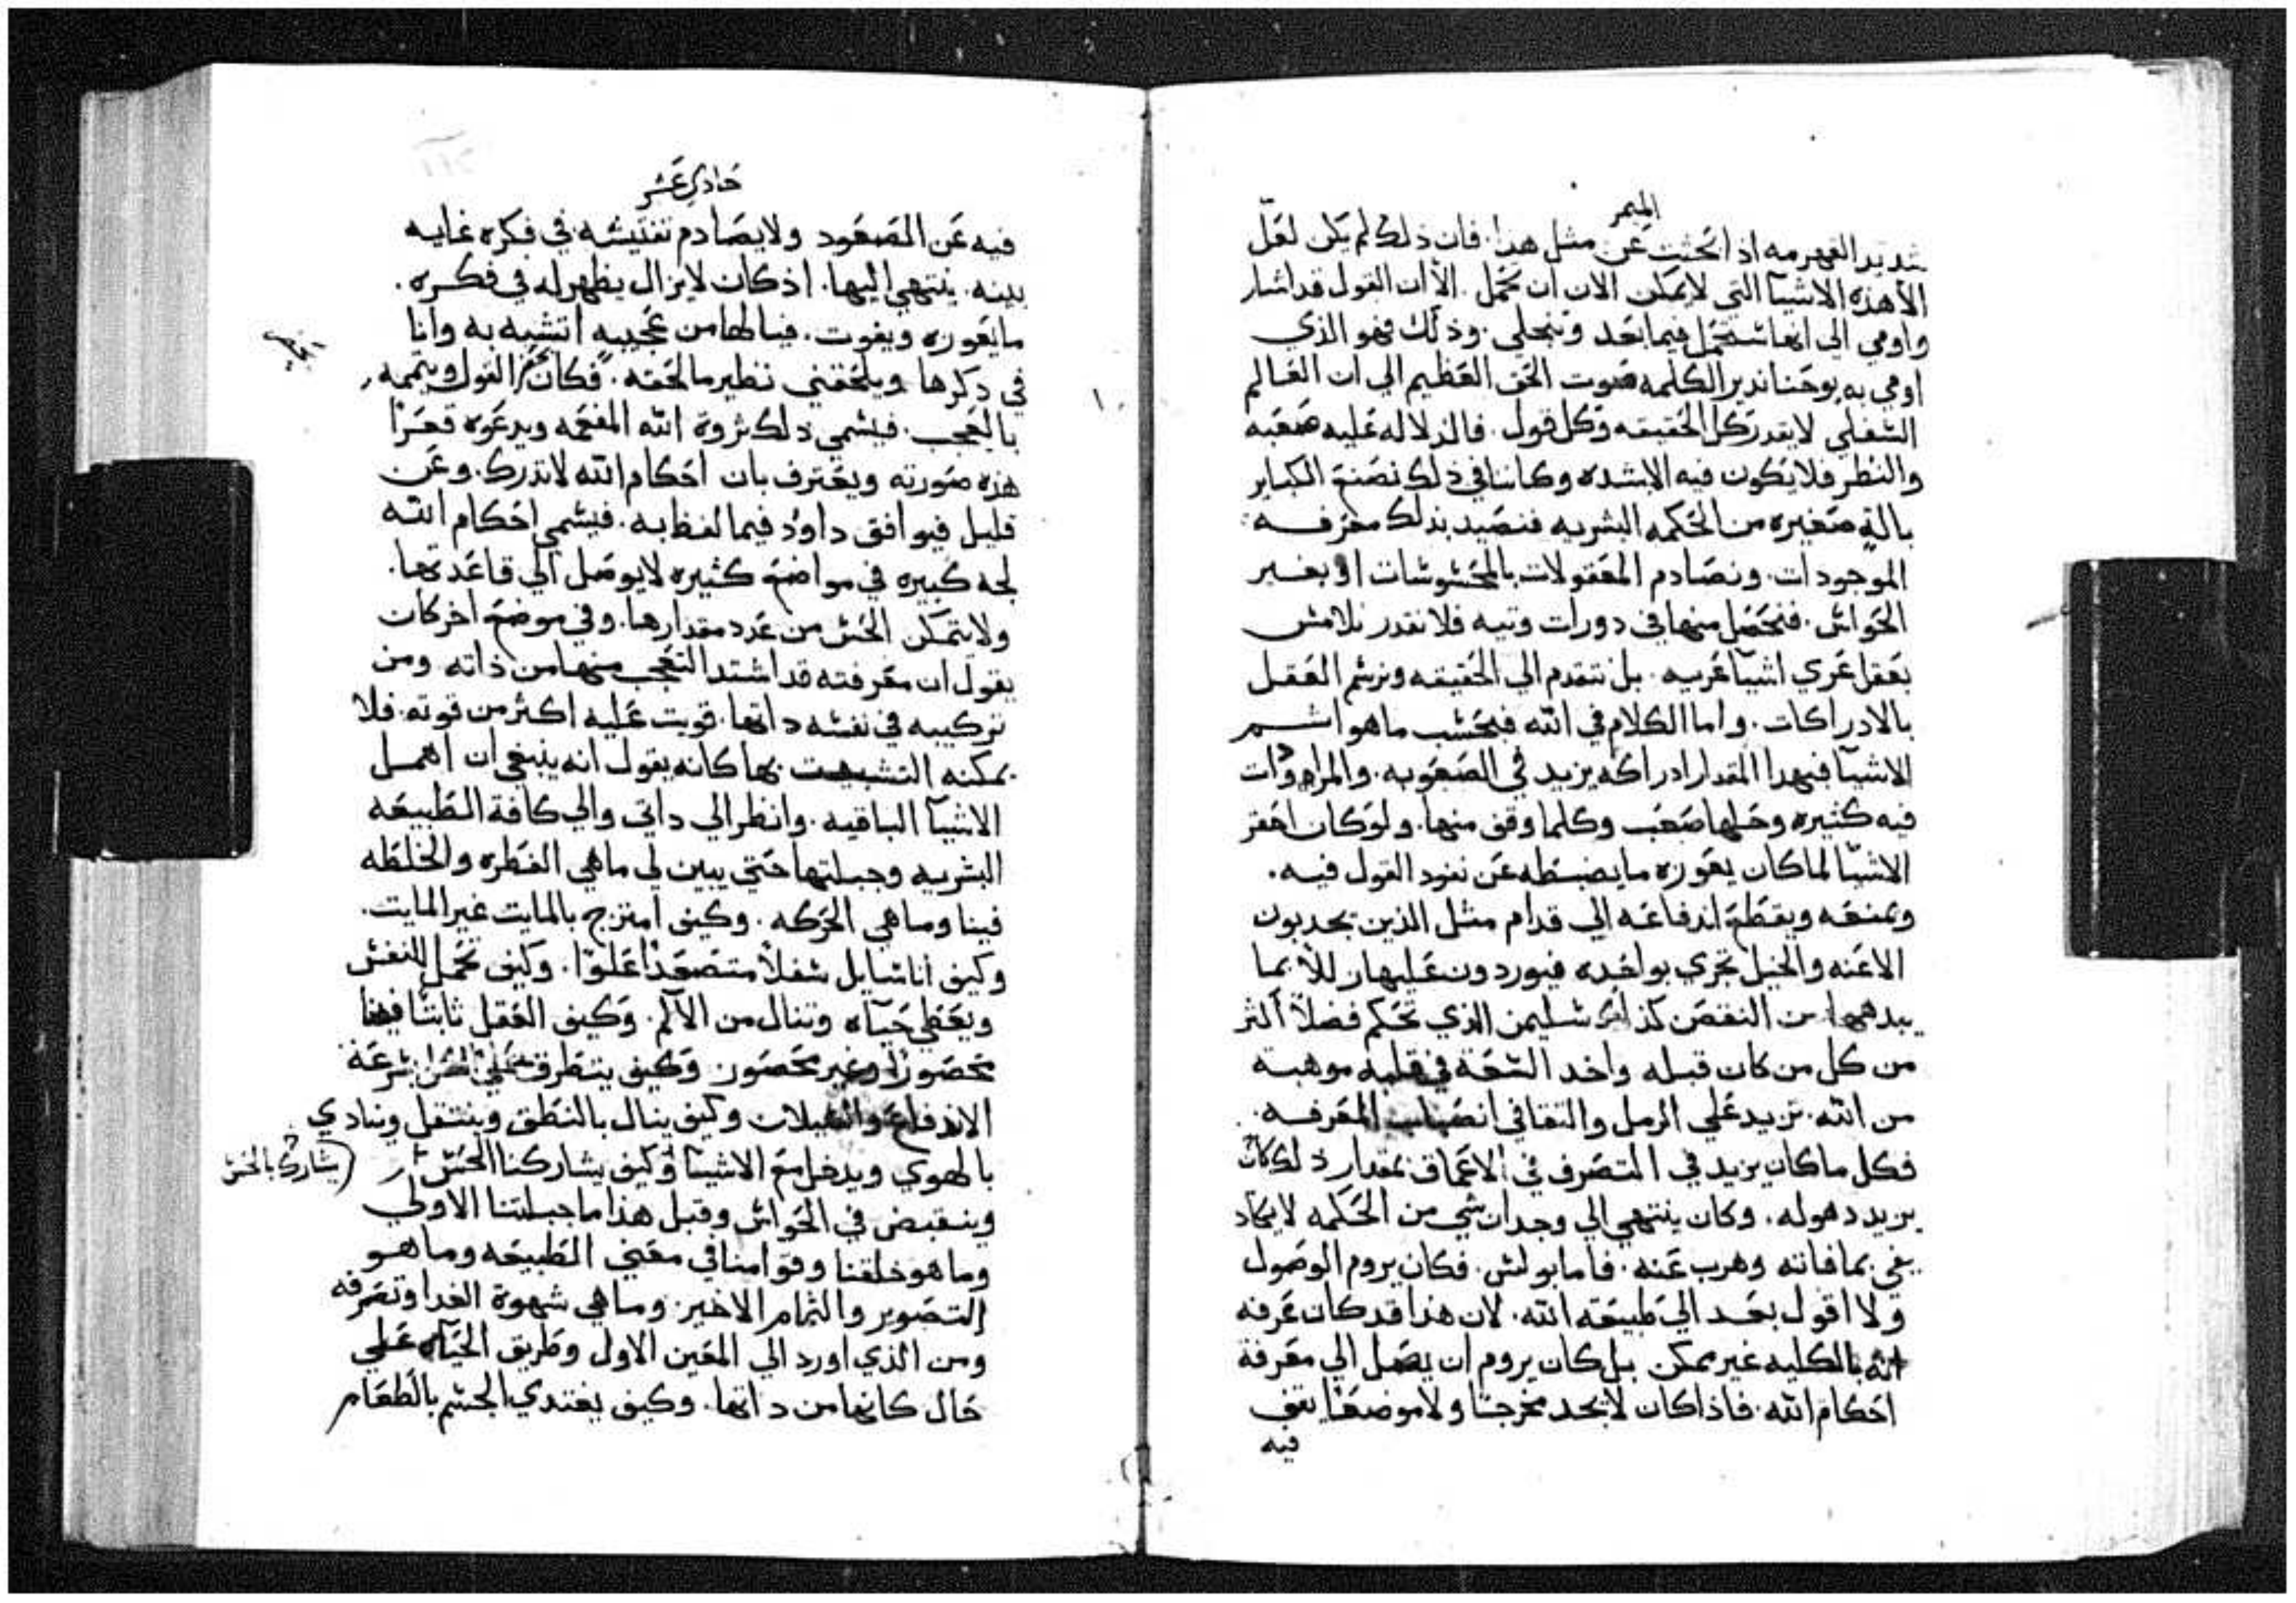 الميمر
بتدبير القهرمه اذا بحثت عن مثل هدا. فان ذلك لم يكن لعل
الا هذه الاشيا التي لا يمكن الان ان تحمل. الا ان القول قد اشار
واومي الى انها ستحمل فيما بعد وتنجلي. وذلك فهو الذي
اومي به يوحنا ندير الكلمه صوت الحق العظيم الي ان العالم
السفلي لا يقدر كل الحقيقه وكل قول. فالدلاله عليه صعبه
والنظر فلا يكون فيه الابشده وكاننا في ذلك نصنع الكباير
بالةٍ صغيره من الحكمه البشريه فنصيد بذلك معرفه
الموجودات. ونصادم المعقولات بالمحسوسات او بغير
الحواس. فنحصل منها في دورات وتيه فلا نقدر نلامس
بعقل عري اشيا عريه. بل نتقدم الي الحقيقه ونرسم العقل
بالادراكات. واما الكلام في الله فبحسب ما هو اسم
الاشيا فبهدا المقدار ادراكه يزيد في الصعوبه. والمراددات
فيه كثيره وحلها صعب وكلما وقف منها. ولو كان احقر
الاشيا لما كان يعوزه ما يضبطه عن نفود القول فيه.
ويمنعه ويقطع اندفاعه الي قدام مثل الذين يجدبون
الاعنه والخيل تجري بواحده فيوردون عليها زللاً بما
يبدهها من النقص كذلك سليمن الذي تحكم فضلاً اكثر
من كل من كان قبله واخد السعة في قلبه موهبه
من الله. تزيد علي الرمل والتقافي انصباب المعرفه.
فكل ما كان يزيد في التصرف في الاعماق بمقدار ذلك كان
يزيد دهوله. وكان ينتهي الي وجدان شي من الحكمه لا يكاد
يفي بما فاته وهرب عنه. فاما بولس. فكان يروم الوصول
ولا اقول بعد الي طبيعة الله. لان هدا قد كان عرفه
انه بالكليه غير ممكن بل كان يروم ان يصل الي معرفة
احكام الله. فاذا كان لا يجد مخرجًا ولا موضعًا يقف
فيه
حادي عشر
فيه عن الصعود ولا يصادم تفتيشه في فكره غايه
بينه. ينتهي اليها. اذ كان لا يزال يظهر له في فكره.
ما يعوزه ويفوت. فيا لها من عجيبه اتشبه به وانا
في دكرها ويلحقني نظير ما لحقه. فكان القول ويتممه
بالعجب. فيسمي ذلك ثروة الله المفعمه ويدعوه قعرًا
هذه صورته ويعترف بان احكام الله لا تدرك. وعن
قليل فيوافق داود فيما لفظ به. فيسمي احكام الله
لجه كبيره في مواضع كثيره لا يوصل الي قاعدتها.
ولا يتمكن الحس من عدد مقدارها. وفي موضع اخر كان
يقول ان معرفته قد اشتد التعجب منها من ذاته ومن
تركيبه في نفسه داتها. قويت عليه اكثر من قوته. فلا
يمكنه التشبث بها كانه يقول انه ينبغي ان اهمل
الاشيا الباقيه. وانظر الي داتي والي كافة الطبيعه
البشريه وجبلتها حتي يبين لي ما هي الفطره والخلطه
فينا وما هي الحركه. وكيف امتزج بالمايت غير المايت.
وكيف انا سايل سفلاً متصعدًا علوًا. وكيف تحمل النفس
ويعطي حياه وتنال من الالم. وكيف العقل ثابتًا فيها
محصورًا وغير محصور وكيف يتطرق علي بسرعة
الاندفاع وكيف ينال بالنطق وينتقل وينادي
بالهوي ويدخل مع الاشيا وكيف يشاركنا الحس
يشارك بالحس
وينقبض في الحواس وقبل هذا ما جبلتنا الاولي
وما هو خلقنا وقوامنا في معني الطبيعه وما هو
التصوير والتمام الاخير. وما هي شهوة الغدا وتصرفه
ومن الذي اورد الي المعين الاول وطريق الحياه علي
حال كانها من داتها. وكيف يغتدي الجسم بالطعام